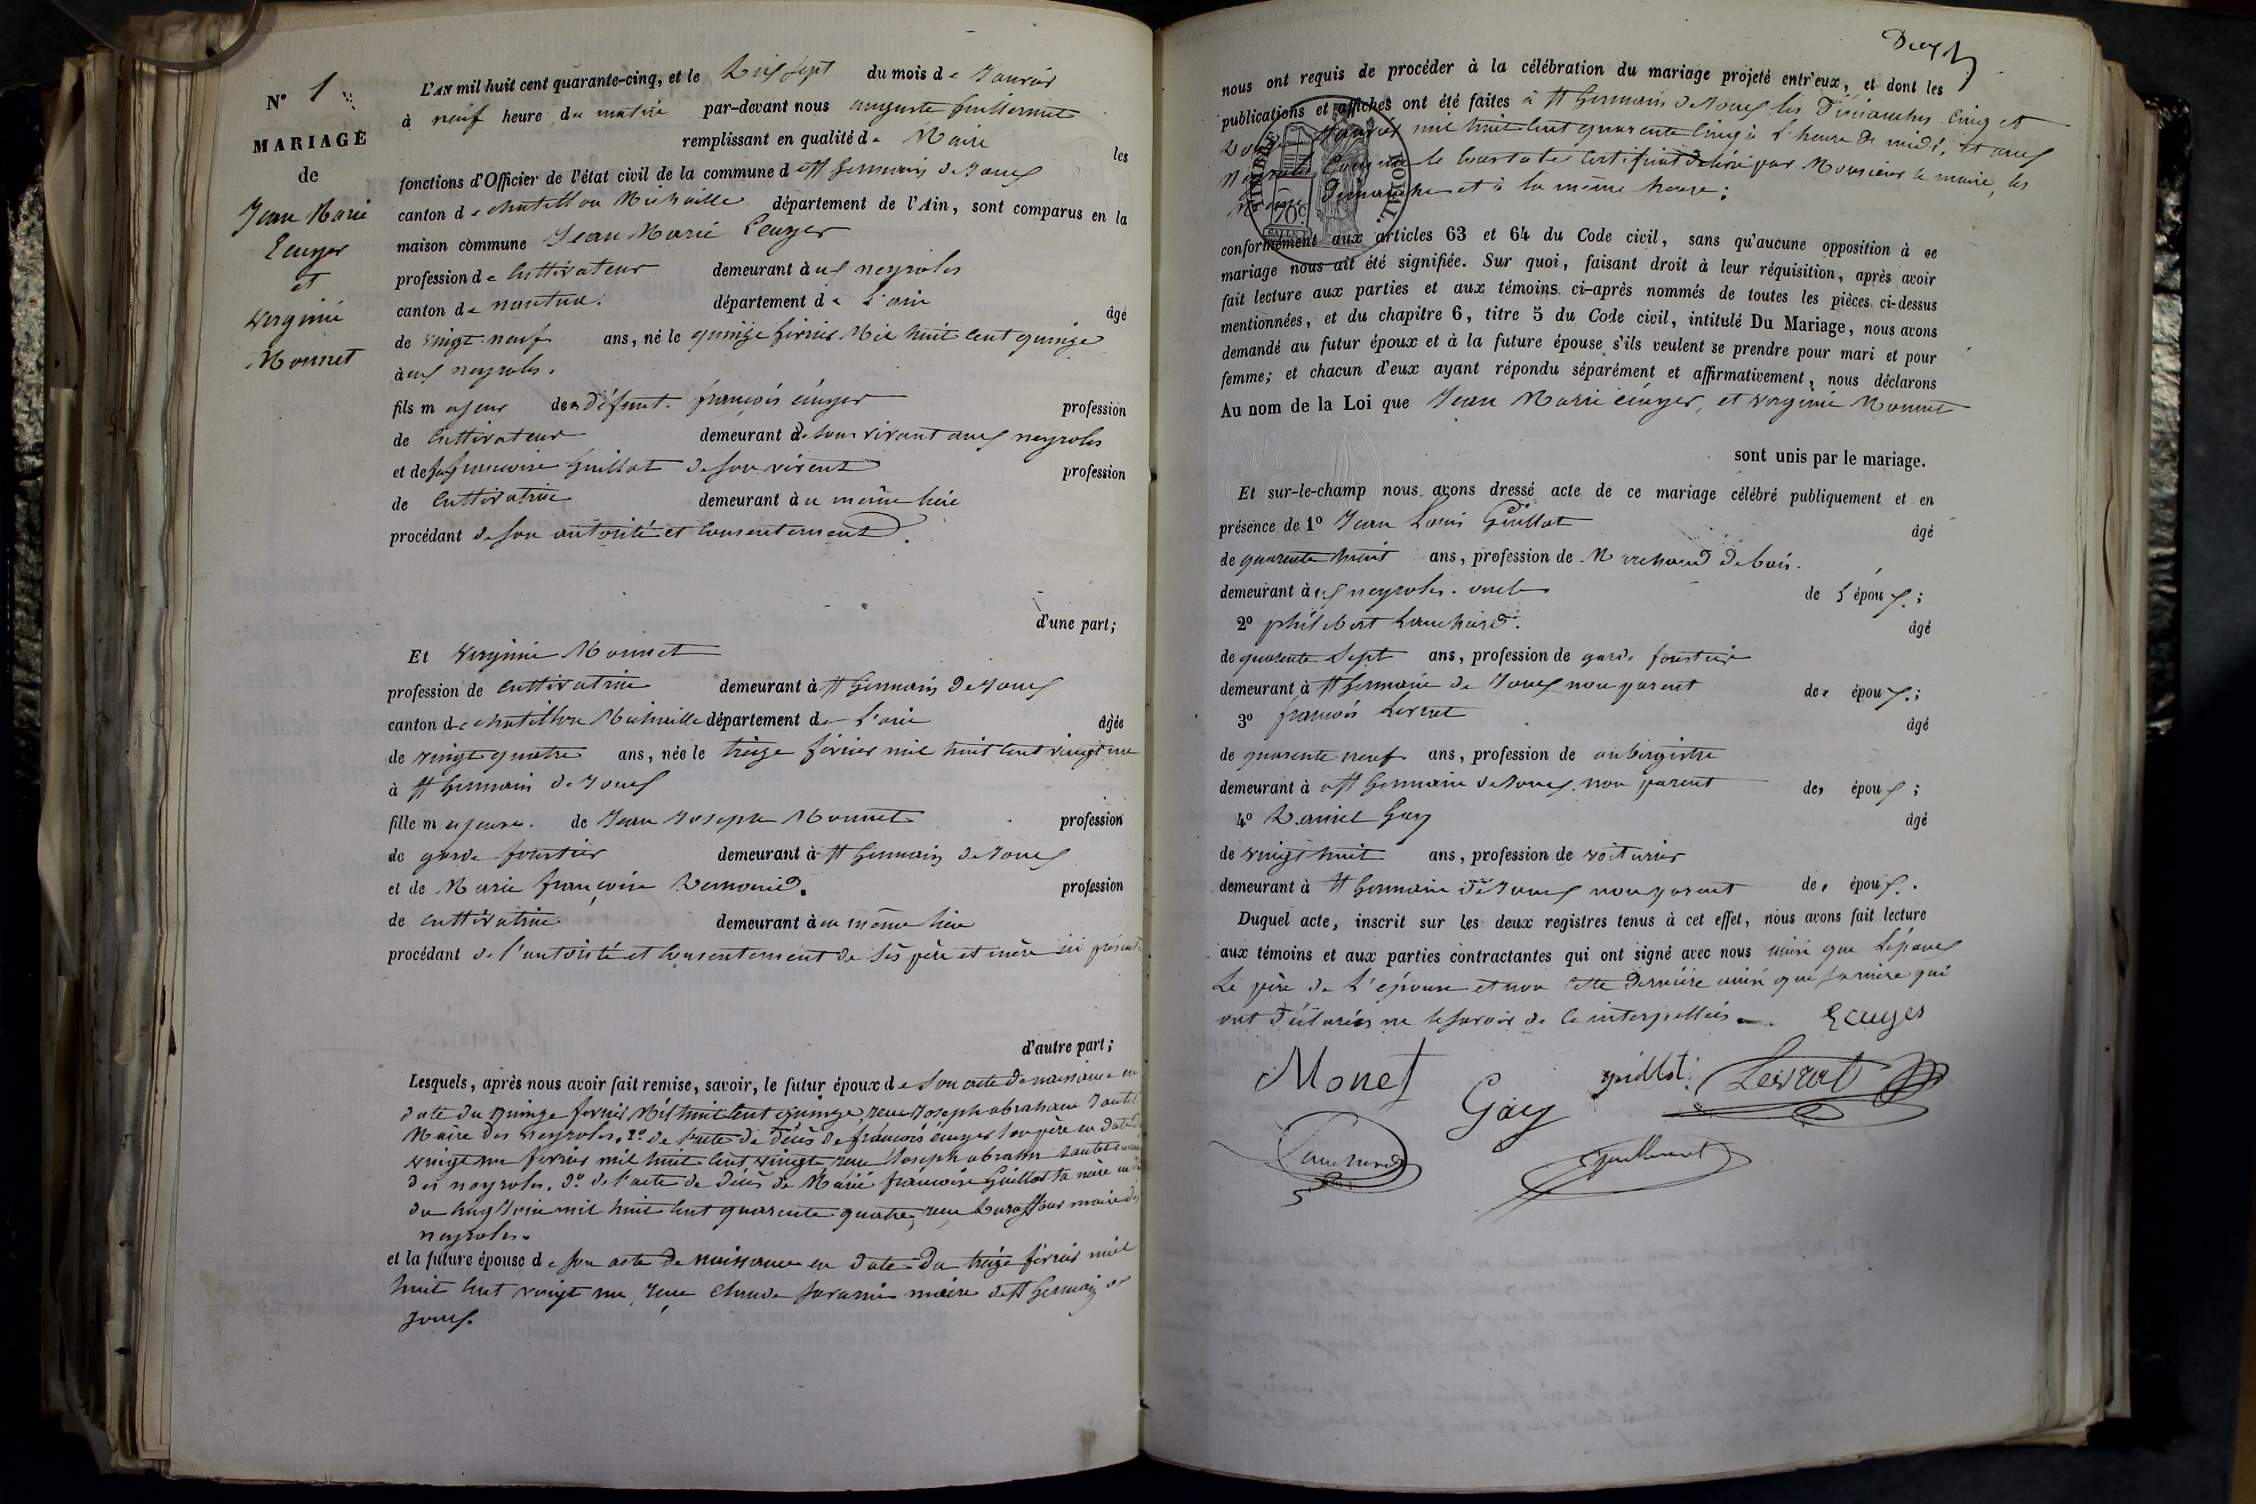 N° 1
MARIAGE
de
Jean Marie
Ecuyer
et
Virginie
Monnet
L'AN mil huit cent quarante-cinq, et le Dix sept du mois de Janvier
à neuf heure du matin par-devant nous auguste Guillermet
remplissant en qualité de Maire les
fonctions d'Officier de l'état civil de la commune de St Germain de Joux
canton de chatillon Michaille département de l'Ain, sont comparus en la
maison commune Jean Marie Ecuyer
profession de Cultivateur demeurant à ux neyroles
canton de nantua. département de L'ain âgé
de vingt neuf ans, né le quinze février Mil huit Cent quinze
à ux neyroles.
fils majeur de Défunt françois écuyer profession
de Cultivateur demeurant de son vivant aux neyroles
et de françoise Guillot de son vivant profession
de Cultivatrice demeurant à u même lieu
procédant de son autorité et Consentement.
d'une part;
Et Virginie Monnet
profession de Cultivatrice demeurant à St Germain De Joux
canton de chatillon Michaille département de L'ain âgée
de vingt quatre ans, née le treize février mil huit Cent vingt un
à St Germain de Joux
fille majeure. de Jean Joseph Monnet profession
de garde forestier demeurant à St Germain de Joux
et de Marie françoise profession
de Cultivatrice demeurant à u même lieu
procédant de l'autorité et Consentement de Sès père et mère ici présents
d'autre part;
Lesquels, après nous avoir fait remise, savoir, le futur époux de Son acte de naissance en
date du quinze février Mil huit Cent quinze, reçu Joseph abraham
Maire des neyroles. 2° de l'acte de Décès de françois écuyer son père en Date du
vingt un février mil huit Cent vingt, reçu Joseph abraham
des neyroles. 3° de l'acte de décès de Marie françoise Guillot sa mère en
du mil huit Cent quarante quatre, reçu maire des
neyroles.
et la future épouse de Son acte de naissance en Date Du treize février mil
huit Cent vingt un, reçu Claude maire de St Germain de
Joux.
nous ont requis de procéder à la célébration du mariage projeté entr'eux, et dont les
publications et affiches ont été faites à St Germain de Joux les Dimanches Cinq et
Douze Janvier mil huit Cent quarante Cinq à l'heure De midi, et aux
Neyroles Comme le Constate Certificat délivré par Monsieur le maire, les
même Dimanche et à la même heure;
TIMBRE ROYAL
70c
conformément aux articles 63 et 64 du Code civil, sans qu'aucune opposition à ce
mariage nous ait été signifiée. Sur quoi, faisant droit à leur réquisition, après avoir
fait lecture aux parties et aux témoins ci-après nommés de toutes les pièces ci-dessus
mentionnées, et du chapitre 6, titre 5 du Code civil, intitulé Du Mariage, nous avons
demandé au futur époux et à la future épouse s'ils veulent se prendre pour mari et pour
femme; et chacun d'eux ayant répondu séparément et affirmativement, nous déclarons
Au nom de la Loi que Jean Marie écuyer, et Virginie Monnet
sont unis par le mariage.
Et sur-le-champ nous avons dressé acte de ce mariage célébré publiquement et en
présence de 1° Jean Louis Guillot âgé
de quarante huit ans, profession de Marchand de bois.
demeurant à ux neyroles. oncle de L'époux.;
2° philibert âgé
de quarante Sept ans, profession de garde forestier
demeurant à St Germain de Joux non parent des époux.;
3° françois Levrat âgé
de quarante neuf ans, profession de aubergiste
demeurant à St Germain de Joux, non parent des époux;
4° Daniel Gay âgé
de vingt huit ans, profession de voiturier
demeurant à St Germain de Joux non parent des époux.
Duquel acte, inscrit sur les deux registres tenus à cet effet, nous avons fait lecture
aux témoins et aux parties contractantes qui ont signé avec nous ainsi que L'époux
Le père de L'épouse et non Cette Dernière ainsi que sa mère qui
ont Déclarées ne le savoir de Ce interpellées. Ecuyer
Monet Gay guillot Levrat
Guillermet